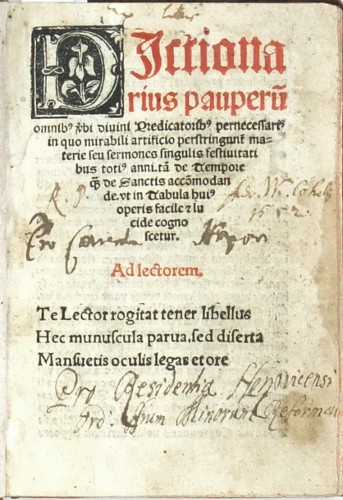 Dictiona
rius pauperū
omnibꝰ v̄bi diuini Predicatoribꝰ pernecessariꝰ
in quo mirabili artificio perstringunt᷑ ma-
terie seu sermones singulis festiuitati
bus totiꝰ anni. tā de Tempore
q̄ȝ de Sanctis accōmodan
de. vt in Tabula huiꝰ
operis facile ⁊ lu
cide cogno
scetur.
Pro
Ad lectorem.
Te Lector rogitat tener libellus
Hec munuscula parua, sed diserta
Mansuetis oculis legas et ore
Pro Residentia
Ord: Minorum Reformat